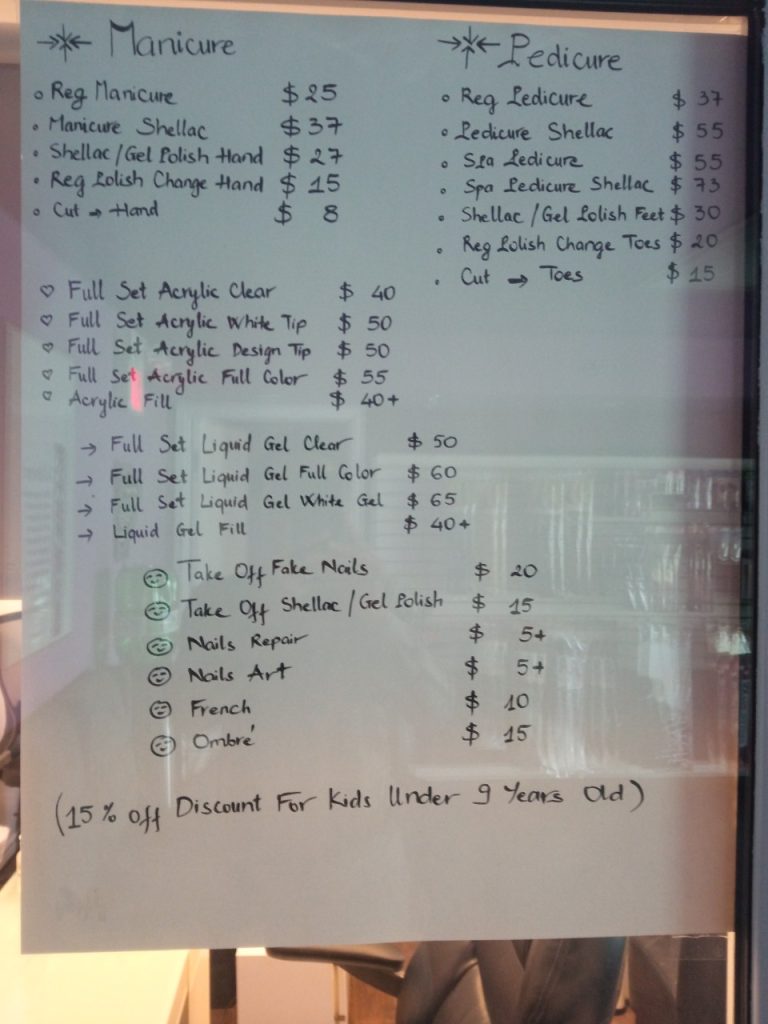 Manicure
Reg Manicure $ 25
Manicure Shellac $ 37
Shellac/Gel Polish Hand $ 27
Reg Polish Change Hand $ 15
Cut → Hand $ 8
Pedicure
Reg Pedicure $ 37
Pedicure Shellac $ 55
Spa Pedicure $ 55
Spa Pedicure Shellac $ 73
Shellac / Gel Polish Feet $ 30
Reg Polish Change Toes $ 20
Cut → Toes $ 15
♡ Full Set Acrylic Clear $ 40
♡ Full Set Acrylic White Tip $ 50
♡ Full Set Acrylic Design Tip $ 50
♡ Full Set Acrylic Full Color $ 55
♡ Acrylic Fill $ 40+
→ Full Set Liquid Gel Clear $ 50
→ Full Set Liquid Gel Full Color $ 60
→ Full Set Liquid Gel White Gel $ 65
→ Liquid Gel Fill $ 40+
Take Off Fake Nails $ 20
Take Off Shellac / Gel Polish $ 15
Nails Repair $ 5+
Nails Art $ 5+
French $ 10
Ombré $ 15
(15 % off Discount For Kids Under 9 Years Old)